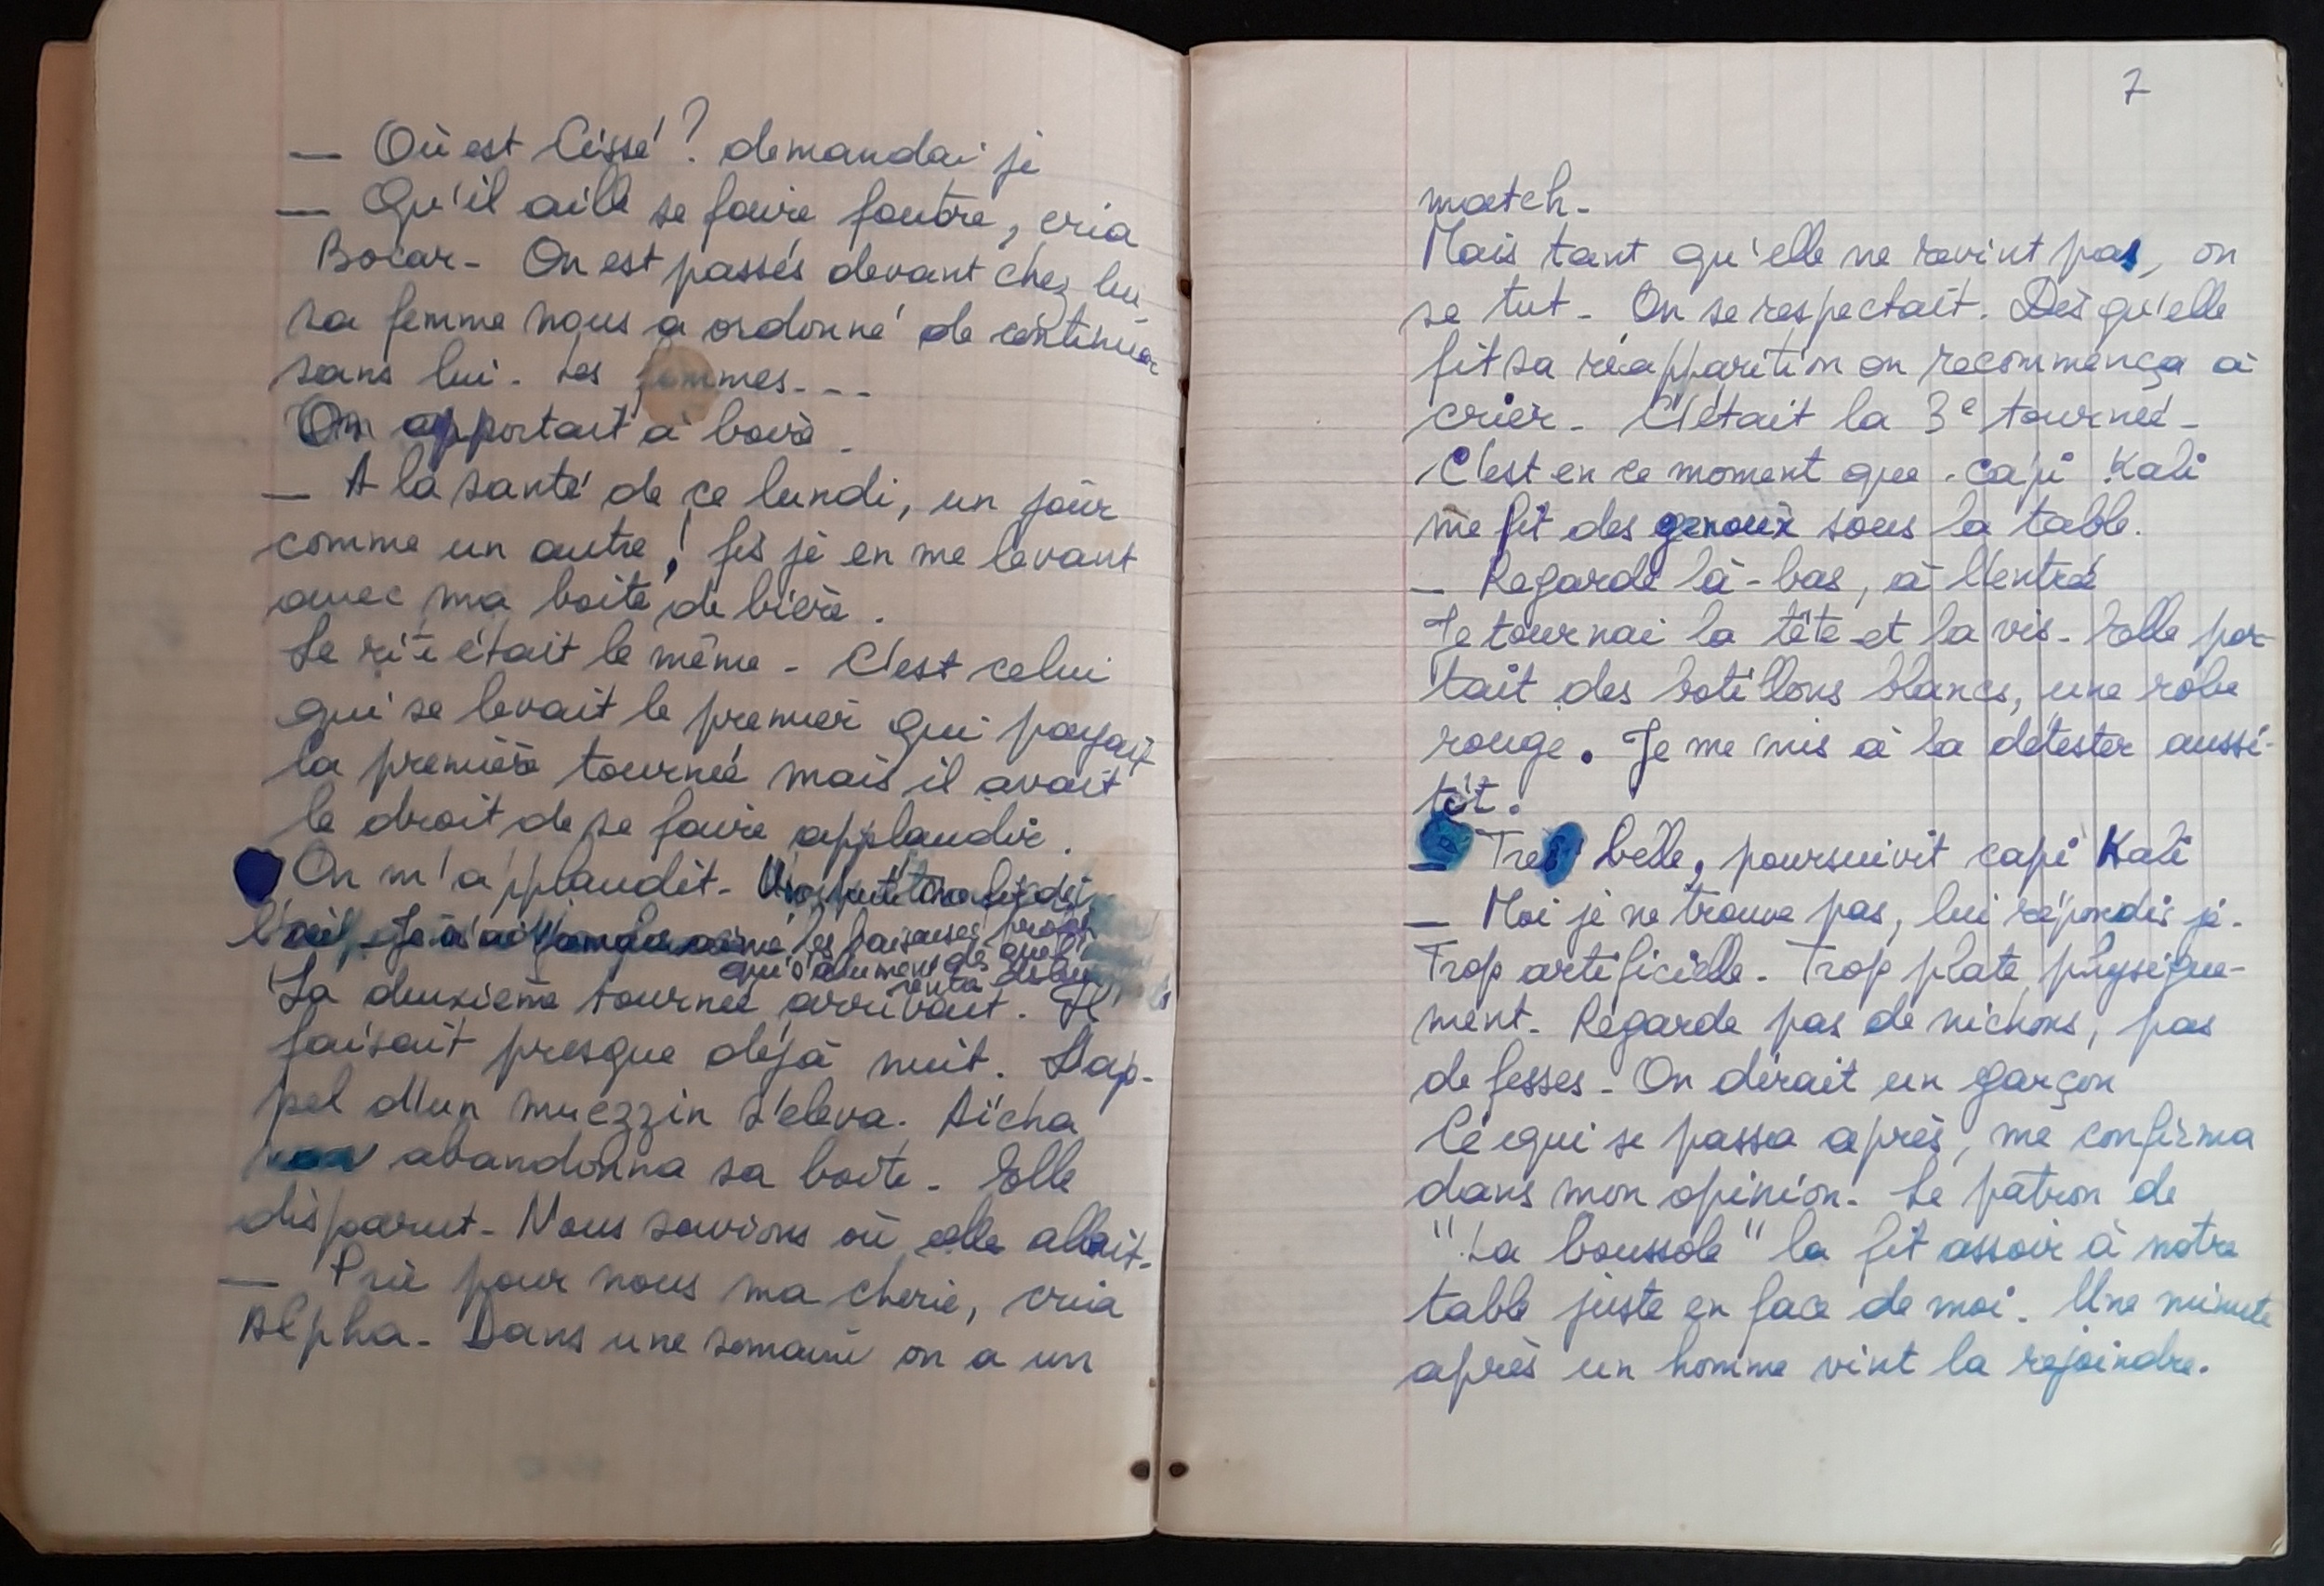 — Où est Cissé ? demandai je
— Qu'il aille se faire foutre, cria
Bocar - On est passés devant chez lui
sa femme nous a ordonné de continuer
sans lui - Les femmes - - -
On apportait à boire.
— A la santé de ce lundi, un jour
comme un autre ! fis je en me levant
avec ma boite de bière.
Le rite était le même - C'est celui
qui se levait le premier qui payait
la première tournée mais il avait
le droit de se faire applaudir.
On m'applaudit - Une
l'œil. Je n'ai jamais aimé les
qui s'allument dès
La deuxième tournée arrivait. Il
faisait presque déjà nuit. L'ap-
pel d'un muezzin s'eleva. Aïcha
abandonna sa boite - Elle
disparut - Nous savions où elle allait -
— Prie pour nous ma cherie, cria
Alpha - Dans une semaine on a un
7
match -
Mais tant qu'elle ne revint pas, on
se tut - On se respectait. Dès qu'elle
fit sa réapparition on recommença à
crier - C'était la 3e tournée -
C'est en ce moment que capi Kali
me fit des genoux sous la table.
— Regarde là-bas, à l'entrée
Je tournai la tête et la vis - Elle por-
tait des botillons blancs, une robe
rouge. Je me mis à la détester aussi-
tôt.
— Très belle, poursuivit capi Kali
— Moi je ne trouve pas, lui répondis je -
Trop artificielle - Trop plate physique-
ment - Regarde pas de nichons, pas
de fesses - On dirait un garçon
Ce qui se passa après, me confirma
dans mon opinion - Le patron de
"La boussole" la fit assoir à notre
table juste en face de moi. Une minute
après un homme vint la rejoindre.